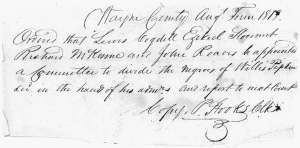 Wayne County Aug Term 1819
Ordered that Lewis Cogdell Ezekel Slocumb
Richard McKinne and John Rears be appointed
a Committee to divide the Negroes of Willis Pipkin
Dec. in the hand of his admrs and report to next Court
Copy P. Hooks Clk